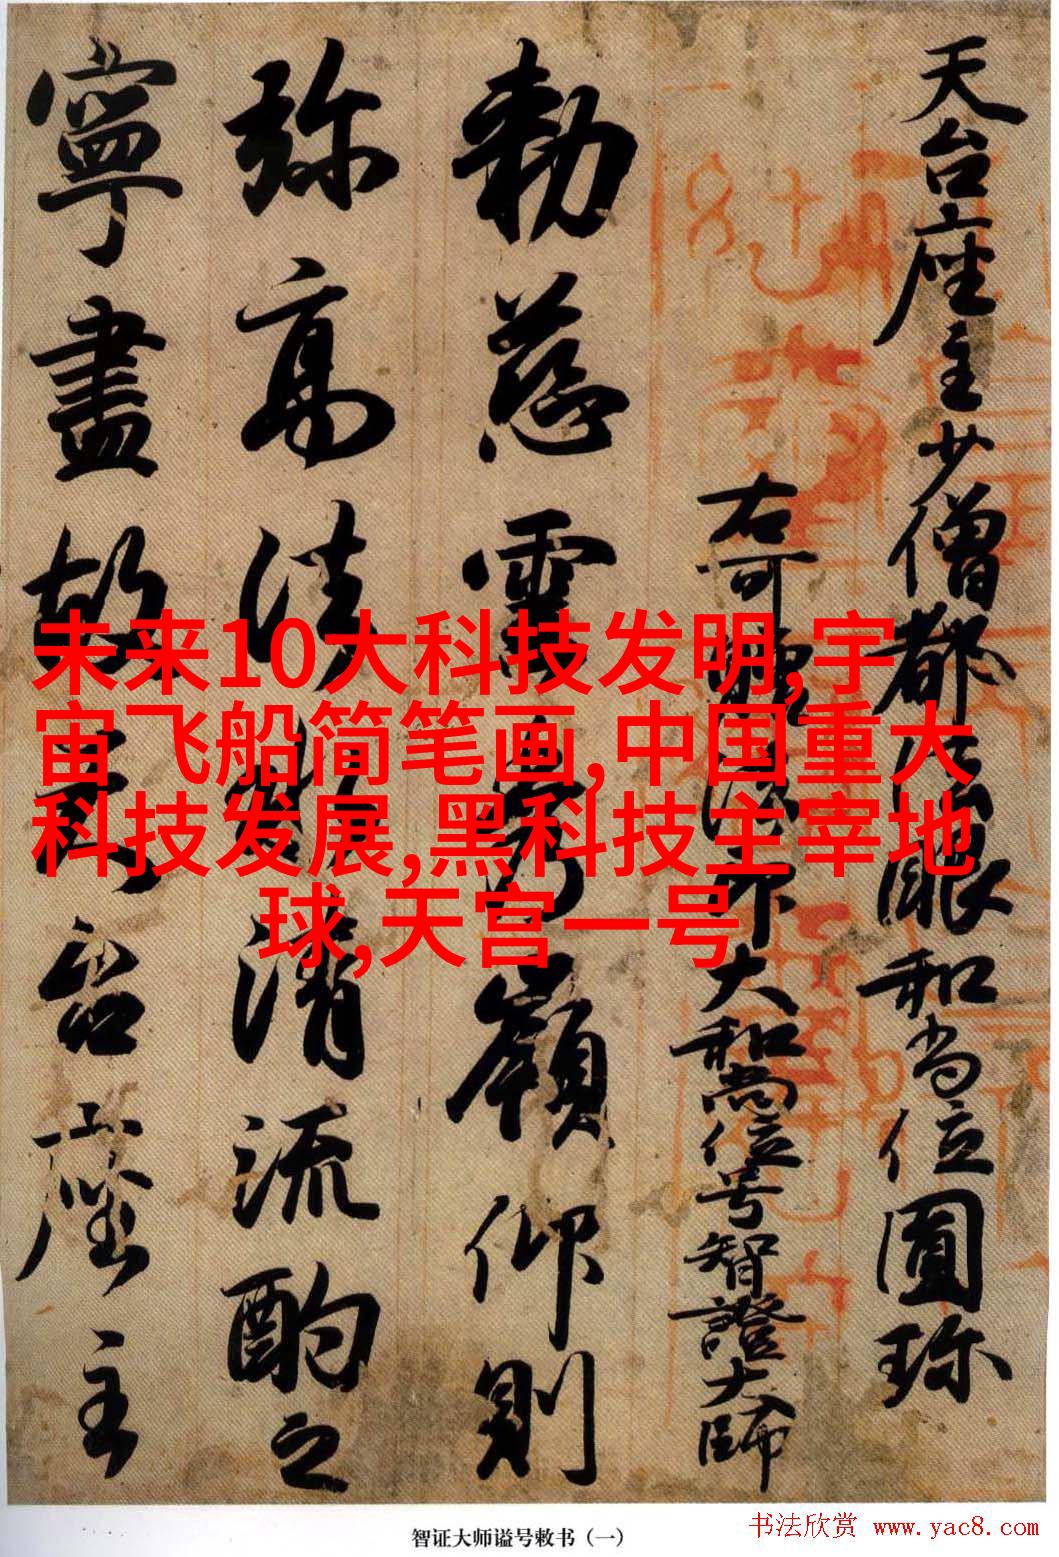 天台座主少僧都法眼和尚位圓珎
右可贈法印大和尚位号智證大師
勅慈雲秀嶺仰則
弥高法清流酌之
寧盡故天台座主
未来10大科技发明,宇
宙飞船简笔画,中国重大
科技发展,黑科技主宰地
球,天宫一号
智证大师谥号敕书（一）
书法欣赏 www.yac8.com